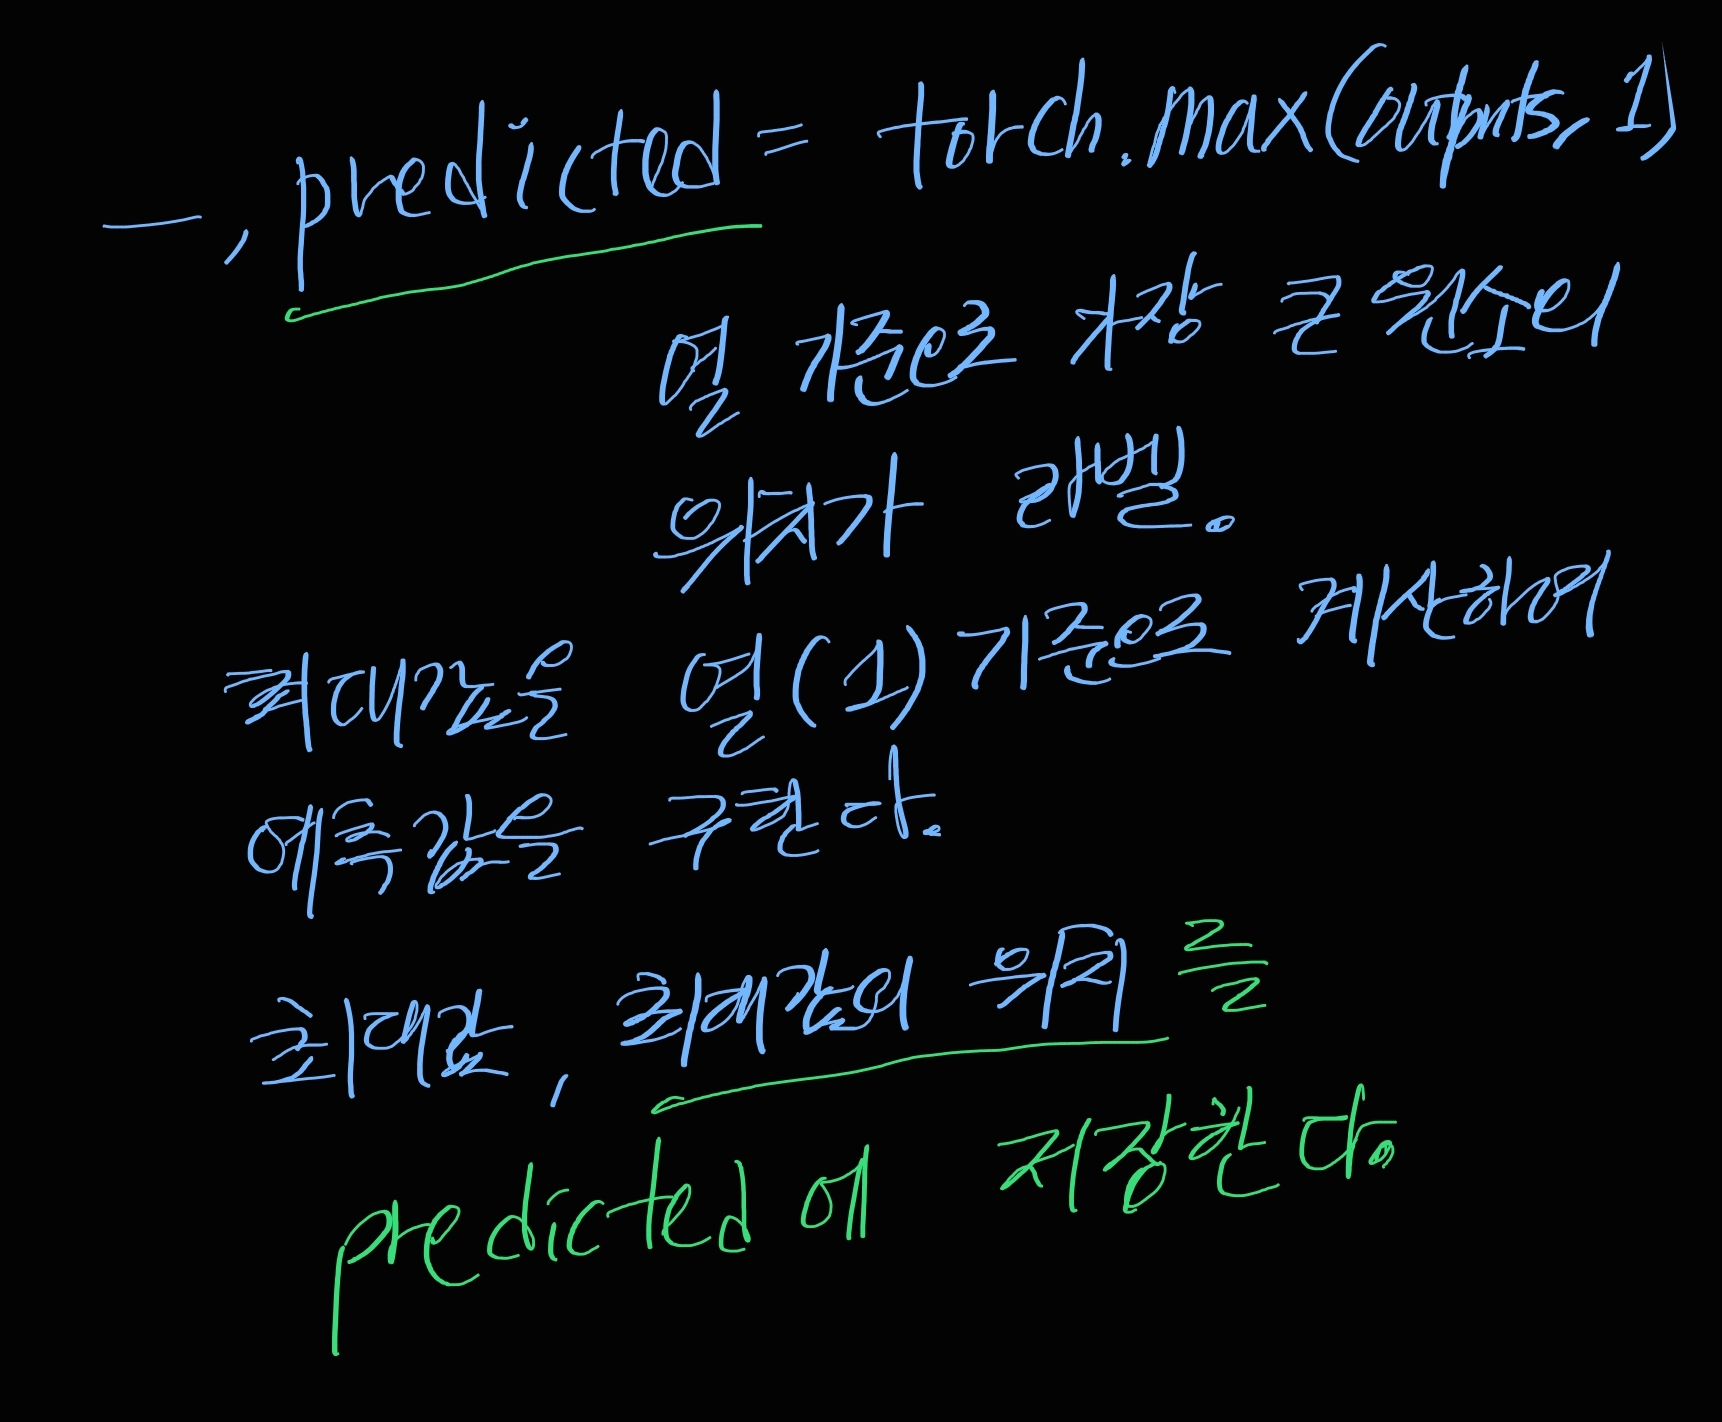 _, predicted = torch.max(outputs, 1)
열 기준으로 가장 큰 원소의
위치가 라벨.
최대값을 열(1) 기준으로 계산하여
예측값을 구한다.
최대값, 최대값의 위치를
predicted에 저장한다.